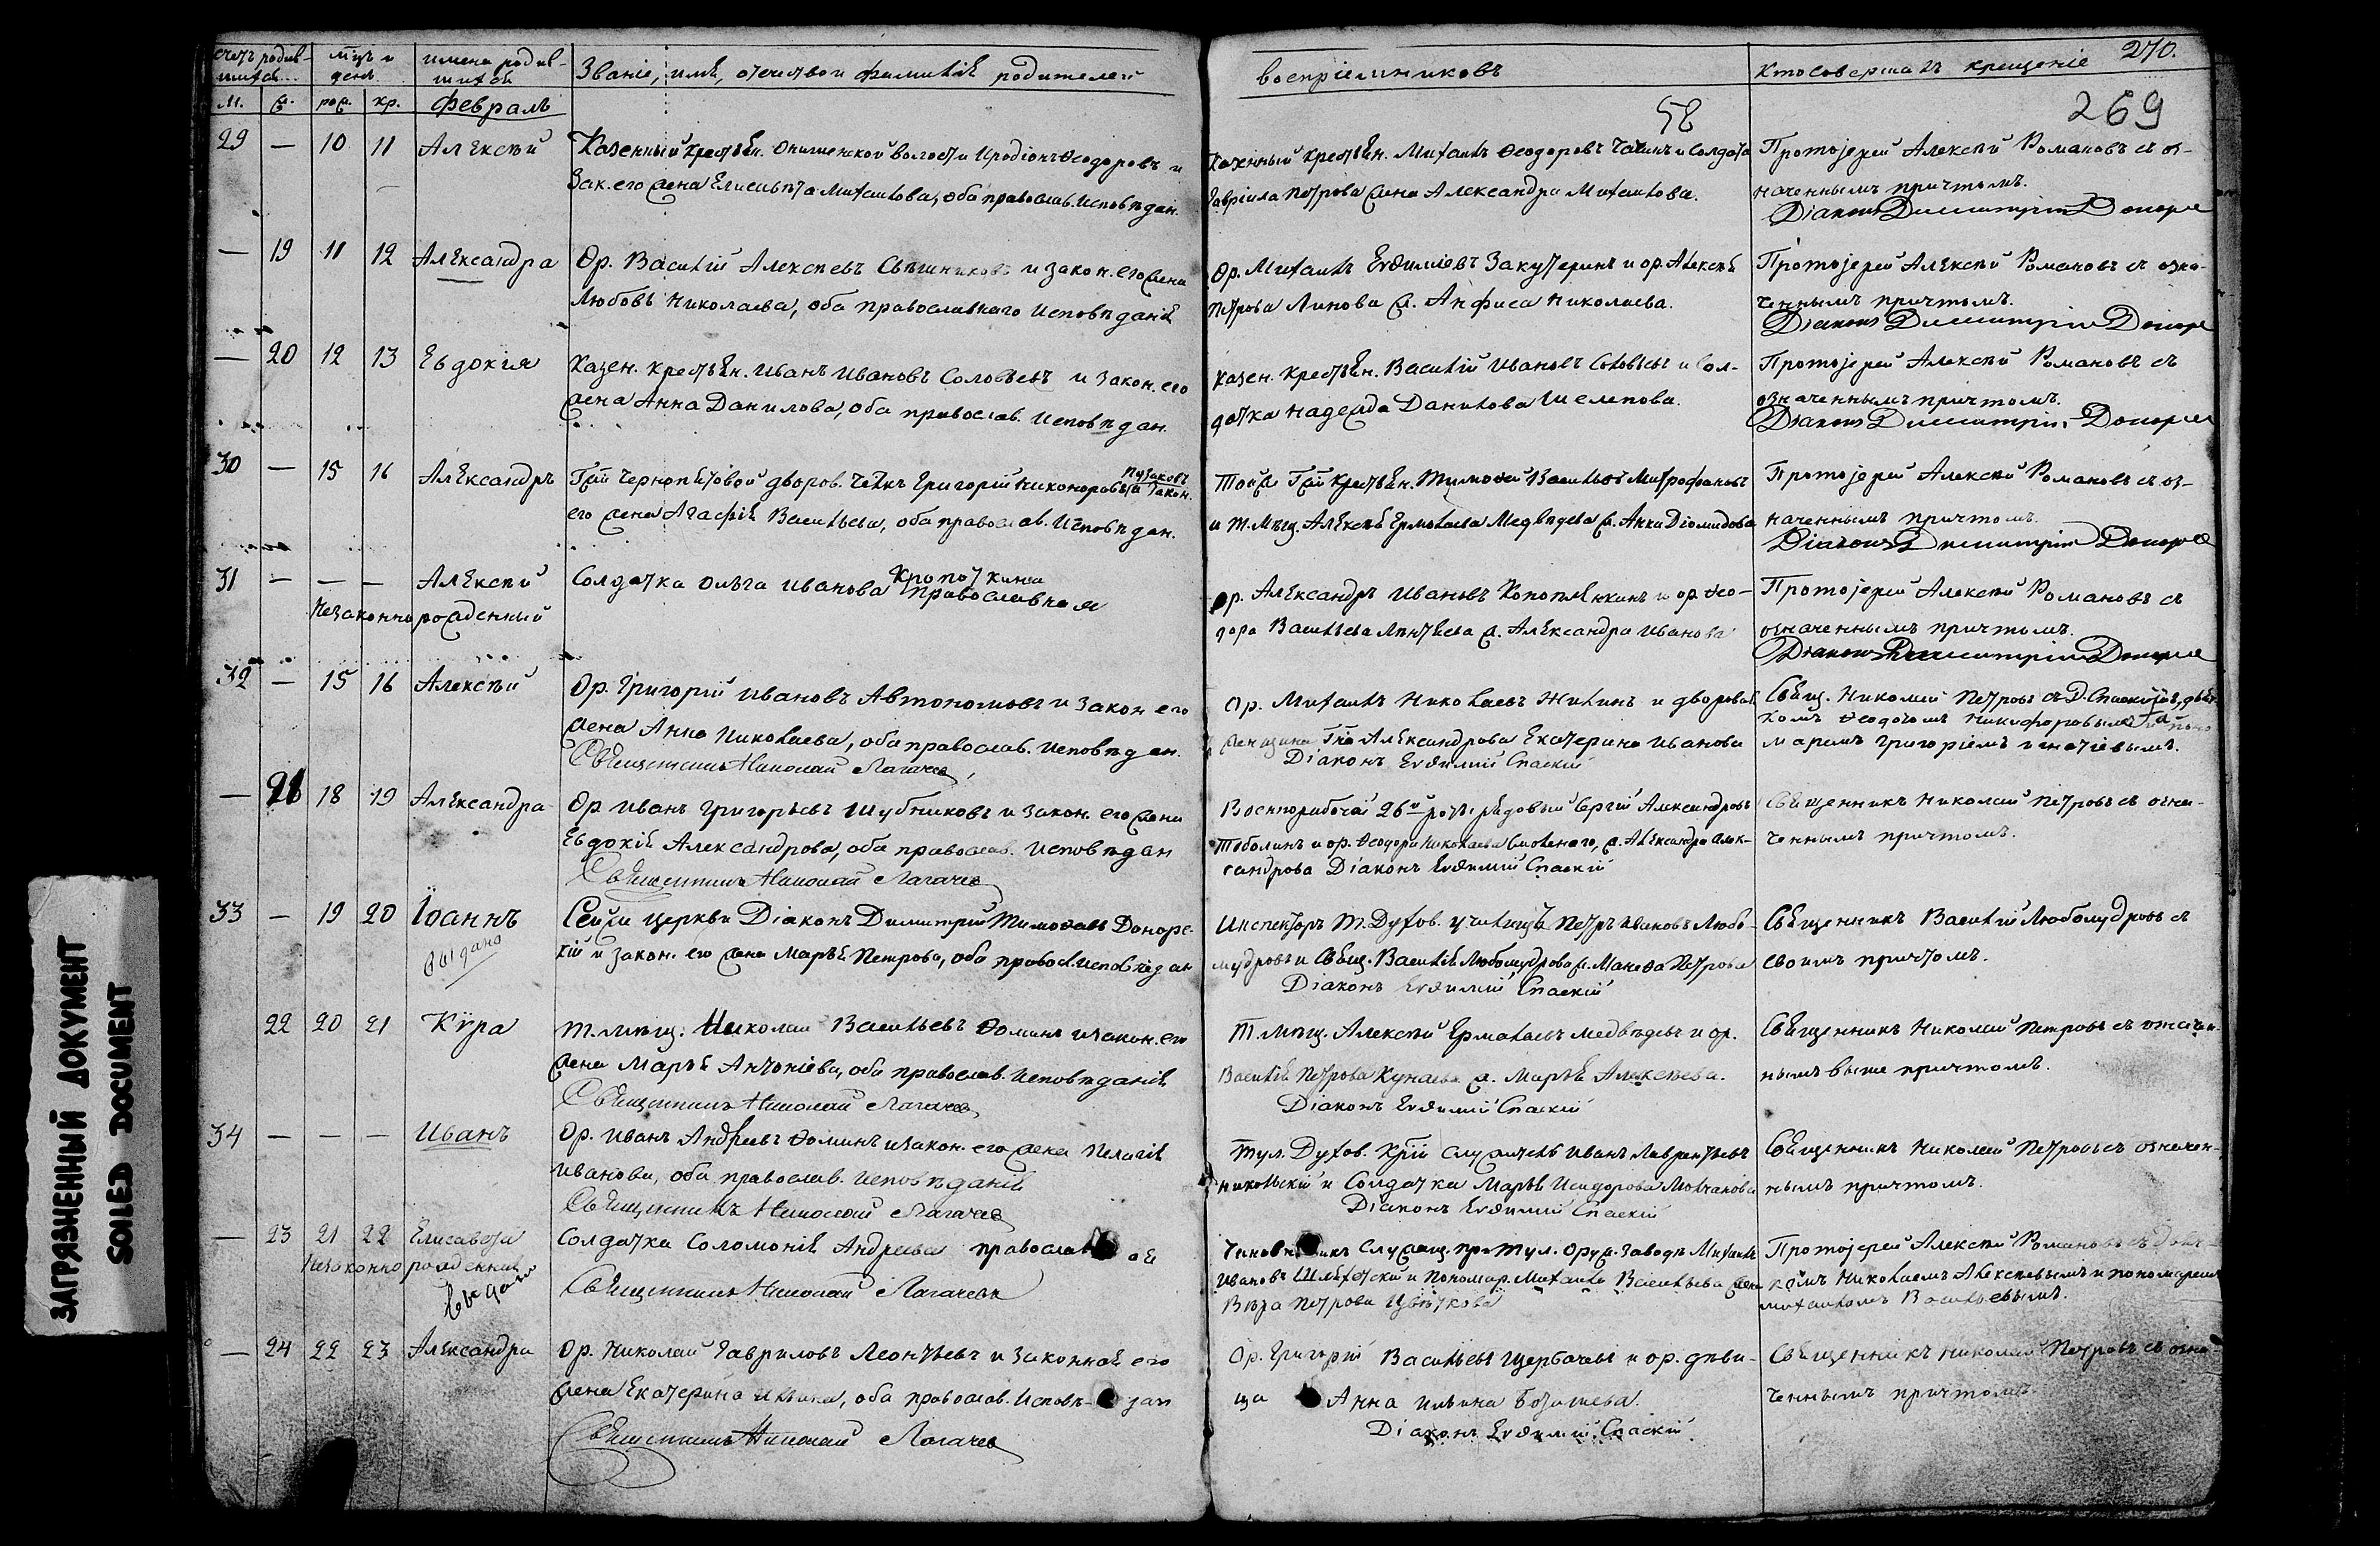 Счетъ родив- шихся
мцъ и день
имена родив- шихся
Званіе, имя, отечество и фамилія родителей
воспріемниковъ
Кто совершалъ крещеніе
270.
м. ж. рож. кр. февраль
58
269
29 — 10 11 Алексѣй
Казенный крестьян. волости Иродіонъ Ѳеодоровъ и
Зак. его жена Елисавета Михайлова, оба православ. исповѣдан.
Казенный крестьян. Михаилъ Ѳеодоровъ и Солдата
Гавріила Петрова жена Александра Михайлова.
Протоіерей Алексѣй Романовъ съ оз-
наченнымъ причтомъ.
Діаконъ Димитрій
— 19 11 12 Александра
Ор. Василій Алексѣевъ Свѣшниковъ и закон. его жена
Любовь Николаева, оба православнаго исповѣданія
Ор. Михаилъ Евѳиміевъ Закутеринъ и ор. Алексѣя
Петрова Линова ж. Анфиса Николаева.
Протоіерей Алексѣй Романовъ съ озна-
ченнымъ причтомъ.
Діаконъ Димитрій
— 20 12 13 Евдокія
Казен. крестьян. Иванъ Ивановъ Соловьевъ и закон. его
жена Анна Данилова, оба православ. исповѣдан.
Казен. крестьян. Василій Ивановъ Соловьевъ и Сол-
датка Надежда Данилова Шелепова.
Протоіерей Алексѣй Романовъ съ
означеннымъ причтомъ.
Діаконъ Димитрій
30 — 15 16 Александръ
Пузаковъ
Гжи дворов. челкъ Григорій Никоноровъ и закон.
его жена Агафія Васильева, оба православ. исповѣдан.
Тойже Гжи крестьян. Тимоѳей Васильевъ Митрофановъ
и т. мѣщ. Алексѣя Ермолаева Медвѣдева ж. Анна Діомидова
Протоіерей Алексѣй Романовъ съ оз-
наченнымъ причтомъ.
Діаконъ Димитрій
31 — — — Алексѣй
Незаконнорожденный
Солдатка Ольга Иванова Кропоткина
православная
ор. Александръ Ивановъ Коноплянкинъ и ор. Ѳео-
дора Васильева Лентьева ж. Александра Иванова
Протоіерей Алексѣй Романовъ съ
означеннымъ причтомъ.
Діаконъ Димитрій
32 — 15 16 Алексѣй
Ор. Григорій Ивановъ Автономовъ и закон его
жена Анна Николаева, оба православ. исповѣдан.
Священникъ Николай Лагачев
Ор. Михаилъ Николаевъ Жилинъ и дворовая
женщина Гна Александрова Екатерина Иванова
Діаконъ Евѳимій Спаскій
Свящ. Николай Петровъ съ Д. Спаскимъ, дьяч-
комъ Ѳеодотомъ Никифоровымъ и поно
маремъ Григоріемъ Игнатіевымъ.
— 21 18 19 Александра
Ор Иванъ Григорьевъ Шубниковъ и закон. его жена
Евдокія Александрова, оба православ. исповѣдан
Священникъ Николай Лагачев
Военнорабочей 26й роты рядовый Сергій Александровъ
Тоболинъ и ор. Ѳеодора Николаева ж. Александра Алек-
сандрова Діаконъ Евѳимій Спаскій
Священникъ Николай Петровъ съ озна-
ченнымъ причтомъ.
33 — 19 20 Іоаннъ
выдано
Сейже церкви Діаконъ Димитрій Тимоѳеевъ
кій и закон. его жена Марья Петрова, оба правосл. исповѣдан
Инспекторъ Т. Духов. училища Петръ Ивановъ Любо-
мудровъ и Свящ. Василія Любомудрова ж. Петрова
Діаконъ Евѳимій Спаскій
Священникъ Василій Любомудровъ съ
своимъ причтомъ.
22 20 21 Кѵра
Т. мѣщ. Николай Васильевъ Ѳоминъ и закон. его
жена Марья Антоніева, оба православ. исповѣданія
Священникъ Николай Лагачев
Т. мѣщ. Алексѣй Ермолаевъ Медвѣдевъ и ор.
Василія Петрова Кунаева ж. Марья Алексѣева.
Діаконъ Евѳимій Спаскій
Священникъ Николай Петровъ съ означен-
нымъ выше причтомъ.
34 — — — Иванъ
Ор. Иванъ Андреевъ Ѳоминъ и закон. его жена Пелагія
Иванова, оба православ. исповѣданія
Священникъ Николай Лагачев
Тул. Духов. Кріи служитель Иванъ Лаврентьевъ
Никольскій и Солдатка Марья Исидорова Молчанова
Діаконъ Евѳимій Спаскій
Священникъ Николай Петровъ съ означен-
нымъ причтомъ.
— 23 21 22 Елисавета
Незаконнорожденная
Выдано
Солдатка Соломонія Андреева православ ая
Священникъ Николай Лагачевъ
Чиновникъ служащ. при Тул. Оруж. заводѣ Михаилъ
Ивановъ и Пономар. Михаила Васильева жена
Вѣра Петрова Цвѣткова
Протоіерей Алексѣй Романовъ съ дьяч-
комъ Николаемъ Алексѣевымъ и пономаремъ
Михаиломъ Васильевымъ.
— 24 22 23 Александра
Ор. Николай Гавриловъ Леонтьевъ и законная его
жена Екатерина Ильина, оба православ. исповѣ- дан
Священникъ Николай Лагачев
Ор. Григорій Васильевъ Щербачевъ и ор. дѣви-
ца Анна Ильина
Діаконъ Евѳимій Спаскій
Священникъ Николай Петровъ съ озна-
ченнымъ причтомъ.
ЗАГРЯЗНЕННЫЙ ДОКУМЕНТ
SOILED DOCUMENT